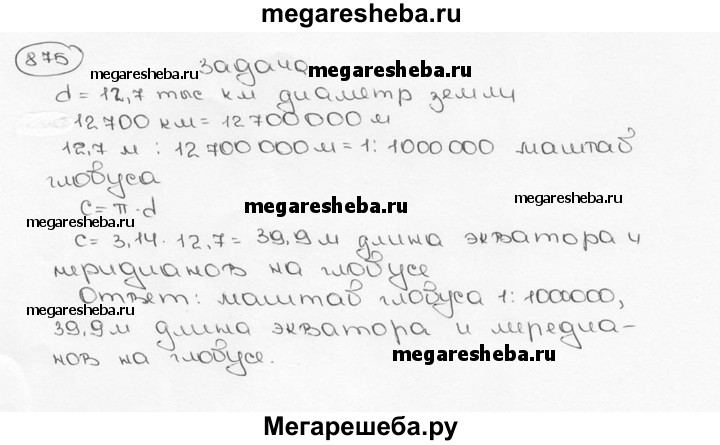 megaresheba.ru
875
megaresheba.ru
задача
megaresheba.ru
d = 12,7 тыс км диаметр земли
12700 км = 12700000 м
12,7 м : 12700000 м = 1 : 1000000 маштаб
глобуса
megaresheba.ru
C = π · d
megaresheba.ru
megaresheba.ru
C = 3,14 · 12,7 = 39,9 м длина экватора и
меридианов на глобусе
Ответ: маштаб глобуса 1 : 1000000,
megaresheba.ru
39,9 м длина экватора и мередиа-
нов на глобусе.
megaresheba.ru
Мегарешеба.ру